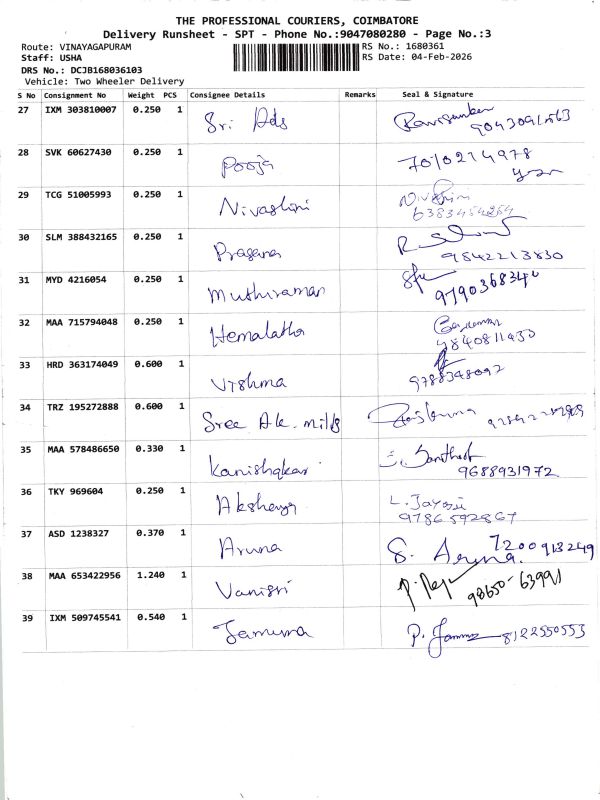 THE PROFESSIONAL COURIERS, COIMBATORE
Delivery Runsheet - SPT - Phone No.:9047080280 - Page No.:3
Route: VINAYAGAPURAM RS No.: 1680361
Staff: USHA RS Date: 04-Feb-2026
DRS No.: DCJB168036103
Vehicle: Two Wheeler Delivery
S No Consignment No Weight PCS Consignee Details Remarks Seal & Signature
27 IXM 303810007 0.250 1 Sri Ads
28 SVK 60627430 0.250 1 Pooja 7010214978
29 TCG 51005993 0.250 1 Nivashini Nivashini
6383454254
30 SLM 388432165 0.250 1 Prasana
9842213830
31 MYD 4216054 0.250 1 Muthuraman
9790368340
32 MAA 715794048 0.250 1 Hemalatha
9840811430
33 HRD 363174049 0.600 1 Vishma 9788348092
34 TRZ 195272888 0.600 1 Sree Ak. mills
35 MAA 578486650 0.330 1 Kanishakar Santhosh
9688931972
36 TKY 969604 0.250 1 Akshaya L. Jayasri
9786592867
37 ASD 1238327 0.370 1 Aruna S. Aruna. 7200913249
38 MAA 653422956 1.240 1 Vanisri 98650-63991
39 IXM 509745541 0.540 1 Jamuna P. Jamuna 8122550553